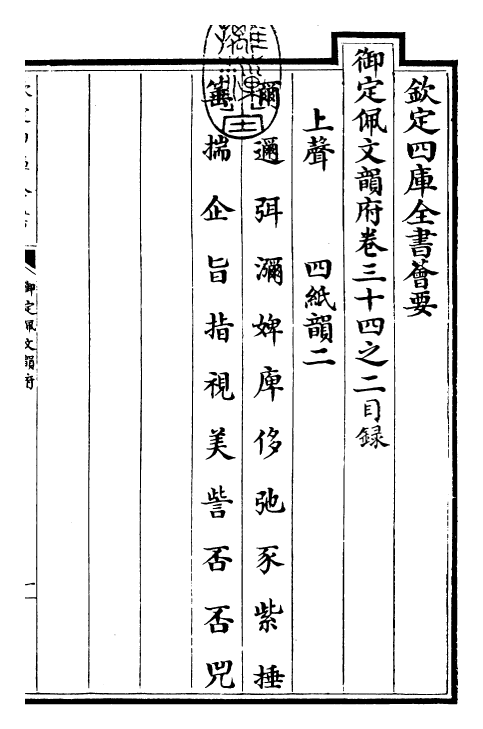 欽定四庫全書薈要
御定佩文韻府卷三十四之二目錄
上聲　四紙韻二
爾邇弭瀰婢庳侈弛豕紫捶
箠揣企旨指視美訾否否兕
御定佩文韻府
一